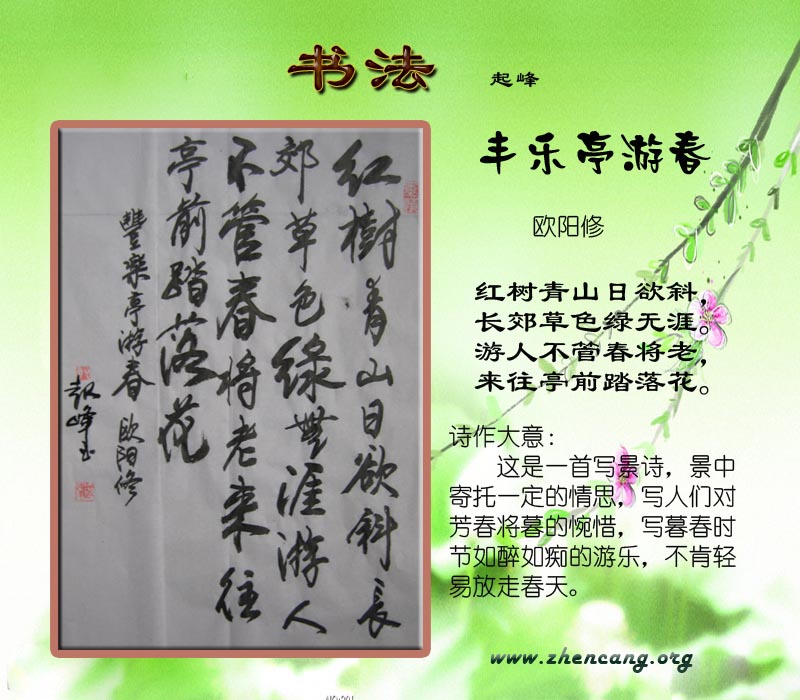 书法
起峰
红樹青山日欲斜長
郊草色綠無涯游人
不管春将老来往
亭前踏落花
豐樂亭游春 欧阳修
起峰书
丰乐亭游春
欧阳修
红树青山日欲斜，
长郊草色绿无涯。
游人不管春将老，
来往亭前踏落花。
诗作大意：
这是一首写景诗，景中
寄托一定的情思，写人们对
芳春将暮的惋惜，写暮春时
节如醉如痴的游乐，不肯轻
易放走春天。
www.zhencang.org